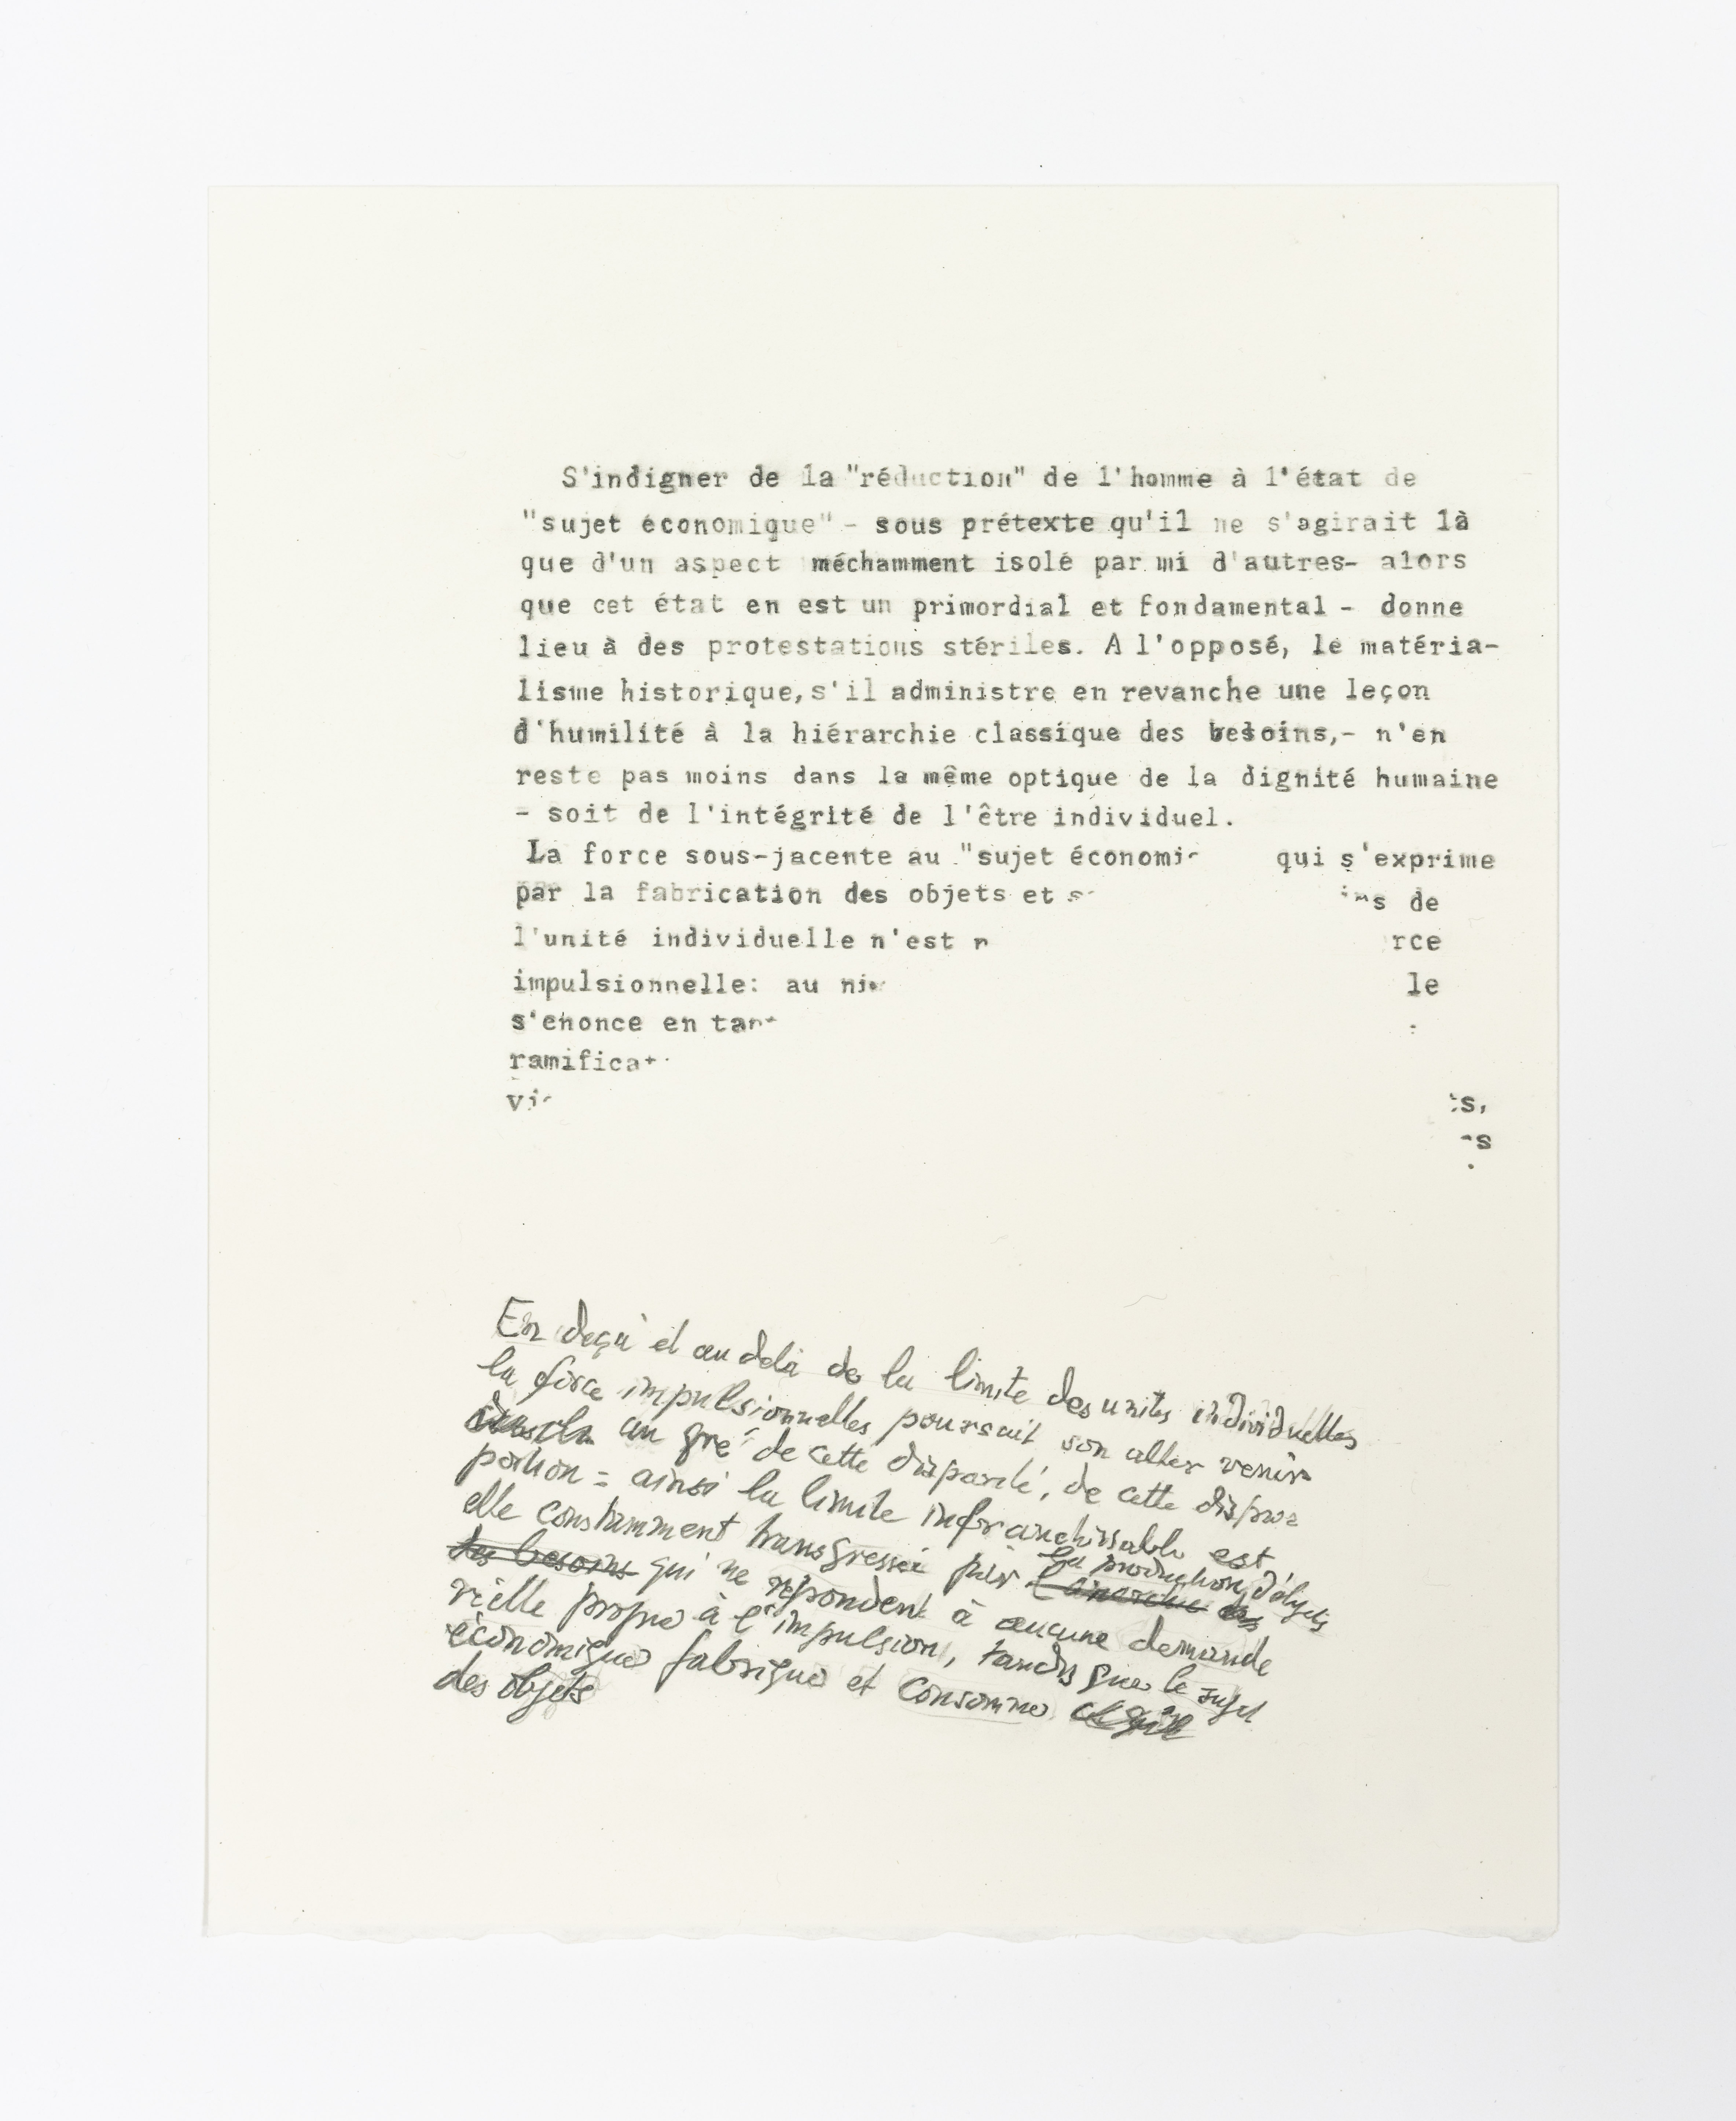 S'indigner de la "réduction" de l'homme à l'état de
"sujet économique" - sous prétexte qu'il ne s'agirait là
que d'un aspect méchamment isolé par mi d'autres- alors
que cet état en est un primordial et fondamental - donne
lieu à des protestations stériles. A l'opposé, le matéria-
lisme historique, s'il administre en revanche une leçon
d'humilité à la hiérarchie classique des besoins,- n'en
reste pas moins dans la même optique de la dignité humaine
- soit de l'intégrité de l'être individuel.
La force sous-jacente au "sujet économi qui s'exprime
par la fabrication des objets et s de
l'unité individuelle n'est rce
impulsionnelle: au ni le
s'enonce en tan
ramifica
vi s,
s
En deçà et au delà de la limite des unités individuelles
la force impulsionnelles poursuit son aller venir
au gré de cette disparité, de cette dispro
portion = ainsi la limite infranchissable est
elle constamment transgressée par la production d'objets
l'anarchie des
les besoins qui ne répondent à aucune demande
réelle propre à l'impulsion, tandis que le sujet
économique fabrique et consomme
des objets